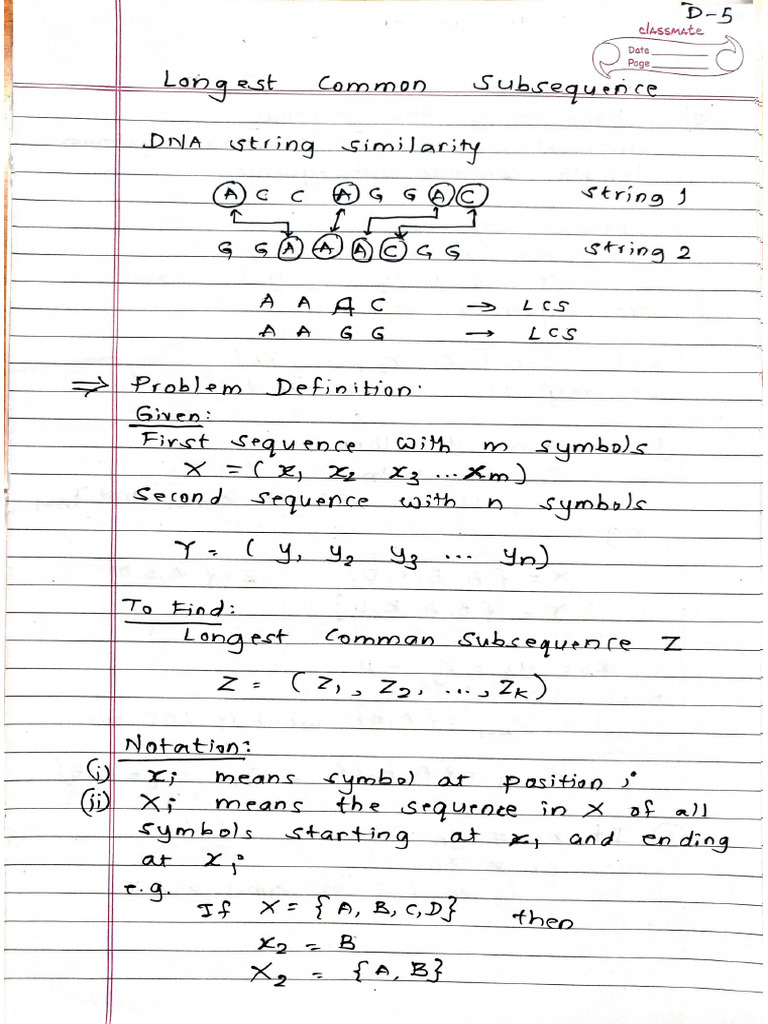 D-5
classmate
Date
Page
Longest Common Subsequence
DNA string similarity
A C C A G G A C String 1
G G A A A C G G String 2
A A A C → LCS
A A G G → LCS
⇒ Problem Definition.
Given:
First sequence with m symbols
X = (x1 x2 x3 ... xm)
Second sequence with n symbols
Y = (y1 y2 y3 ... yn)
To Find:
Longest Comman Subsequence Z
Z = (Z1, Z2, ..., Zk)
Notation:
(i) xi means symbol at position i
(ii) Xi means the sequence in X of all
symbols starting at x1 and ending
at xi
e.g.
If X = {A, B, C, D} then
x2 = B
X2 = {A, B}